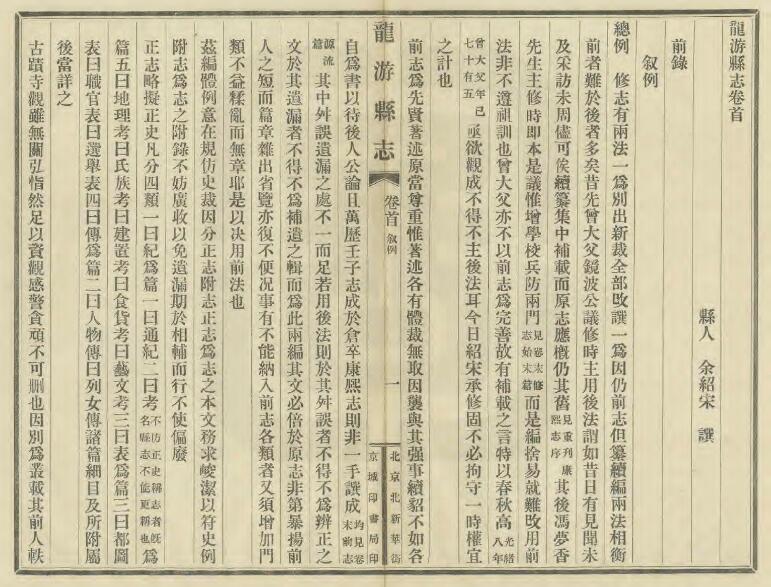 龍游縣志卷首
縣人　余紹宋　譔
前錄
敘例
總例　修志有兩法一爲別出新裁全部改譔一爲因仍前志但纂續編兩法相衡
前者難於後者多矣昔先曾大父鏡波公議修時主用後法謂如昔日有見聞未
及采訪未周儘可俟續纂集中補載而原志應槪仍其舊見重刋康熙志序其後馮夢香
先生主修時卽本是議惟增學校兵防兩門見卷末修志始末篇而是編捨易就難改用前
法非不遵祖訓也曾大父亦不以前志爲完善故有補載之言特以春秋高光緒八年
曾大父年已七十有五亟欲觀成不得不主後法耳今日紹宋承修固不必拘守一時權宜
之計也
前志爲先賢著述原當尊重惟著述各有體裁無取因襲與其強事續貂不如各
龍游縣志
卷首 敘例
一
北京北新華街
京城印書局印
自爲書以待後人公論且萬歷壬子志成於倉卒康熙志則非一手譔成均見卷末前志
源流篇其中舛誤遺漏之處不一而足若用後法則於其舛誤者不得不爲辨正之
文於其遺漏者不得不爲補遺之輯而爲此兩編其文必倍於原志非第暴揚前
人之短而篇章雜出省覽亦復不便況事有不能納入前志各類者又須增加門
類不益糅亂而無章耶是以決用前法也
茲編體例意在規仿史裁因分正志附志正志爲志之本文務求峻潔以符史例
附志爲志之附錄不妨廣收以免遺漏期於相輔而行不使偏廢
正志略擬正史凡分四類一曰紀爲篇一曰通紀二曰考不仿正史稱志者旣名縣志不能更稱也爲
篇五曰地理考曰氏族考曰建置考曰食貨考曰藝文考三曰表爲篇三曰都圖
表曰職官表曰選舉表四曰傳爲篇二曰人物傳曰列女傳諸篇細目及所附屬
後當詳之
古蹟寺觀雖無關弘恉然足以資觀感警貪頑不可删也因別爲叢載其前人軼